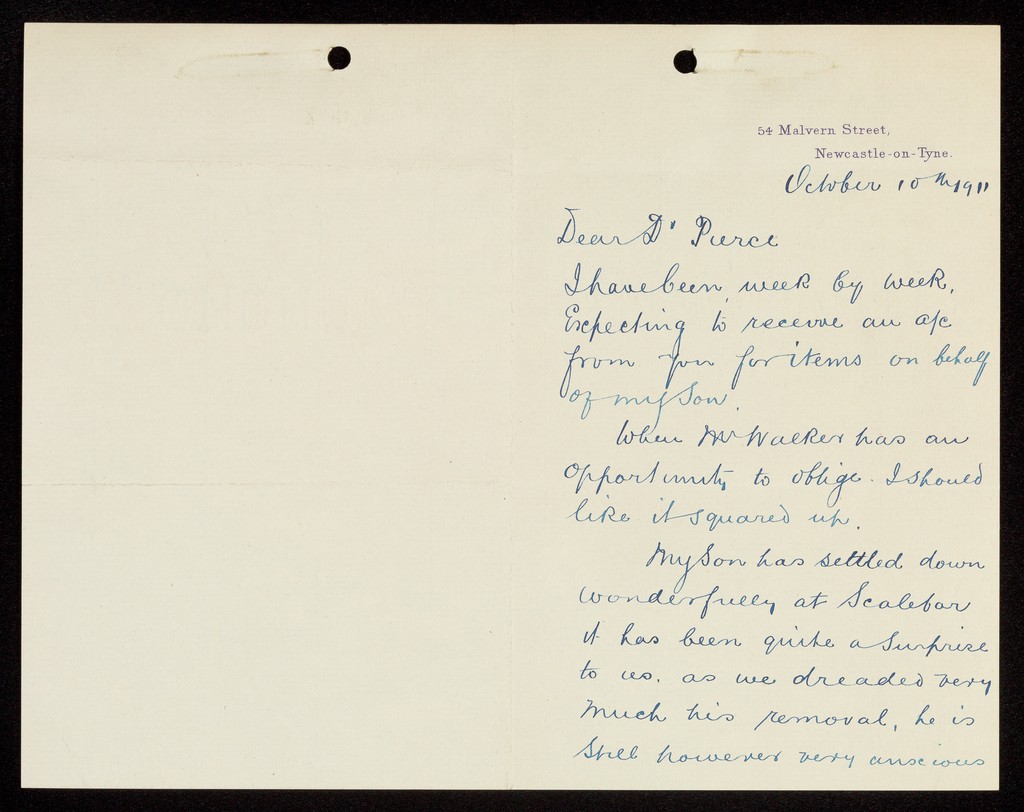 54 Malvern Street,
Newcastle-on-Tyne.
October 10th 1911
Dear Dr Pierce
I have been, week by week,
Expecting to receive an a/c
from you for items on behalf
of my Son.
When Mr Walker has an
opportunity to oblige. I should
like it squared up.
My Son has settled down
wonderfully at Scalebar
it has been quite a Surprise
to us. as we dreaded very
much his removal, he is
Still however very anxious